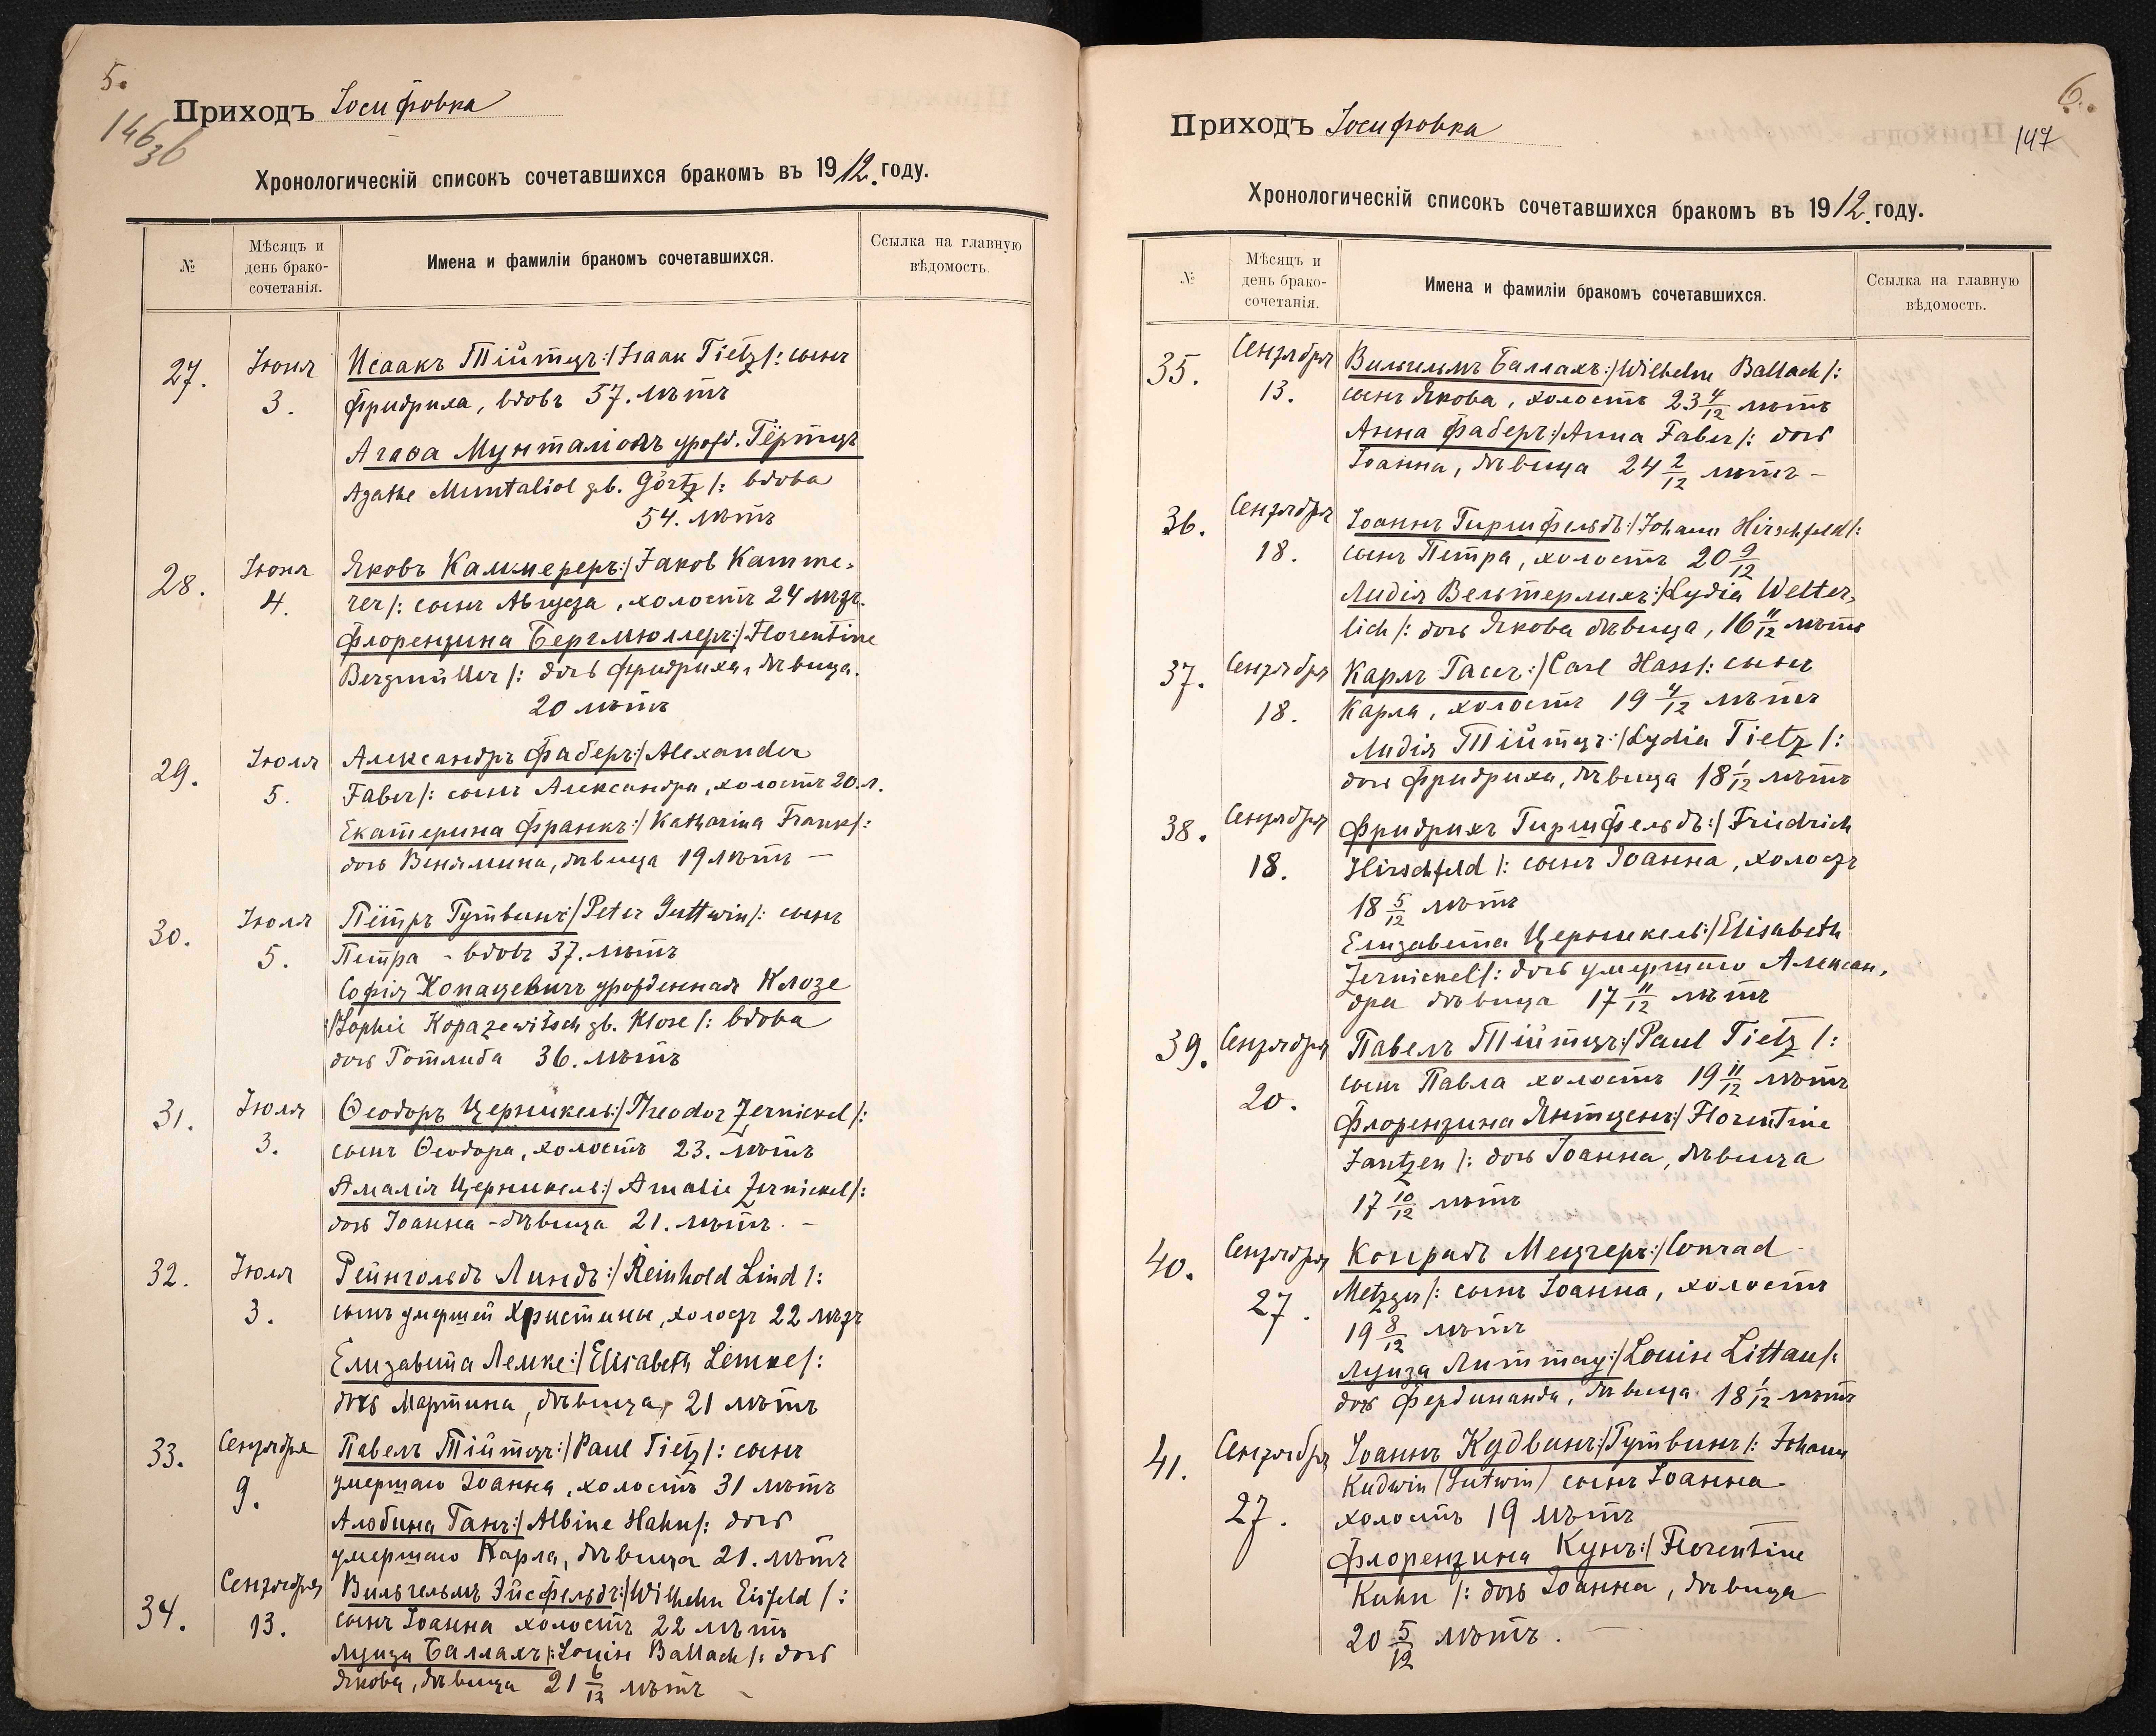 5.
146
зб
Приходъ Іосифовка
Хронологическій списокъ сочетавшихся бракомъ въ 1912. году.
№
Мѣсяцъ и день брако-сочетанія.
Имена и фамиліи бракомъ сочетавшихся.
Ссылка на главную вѣдомость.
27. Іюня Исаакъ Тійтцъ:/Isaak Tietz/: сынъ
3. Фридриха, вдовъ 57. лѣтъ
Агаѳа Мунталіолъ урожд. Гёртцъ
Agathe Muntaliol gb. Görtz /: вдова
54. лѣтъ
28. Іюня Яковъ Каммереръ:/Jakob Kamme-
4. rer/: сынъ Августа, холостъ 24 лѣтъ.
Флорентина Бергмюллеръ:/Florentine
Bergmüller /: дочь Фридриха, дѣвица.
20 лѣтъ
29. Іюля Александръ Фаберъ:/Alexander
5. Faber/: сынъ Александра, холостъ 20.л.
Екатерина Франкъ:/Katharina Frank/:
дочь Веніамина, дѣвица 19 лѣтъ —
30. Іюля Пётръ Гутвинъ:/Peter Guttwin/: сынъ
5. Петра - вдовъ 37. лѣтъ
Софія Копацевичъ урожденная Клозе
:/Sophie Kopazewitsch gb. Klose /: вдова
дочь Готлиба 36. лѣтъ
31. Іюля Ѳеодоръ Церникель:/Theodor Zernickel/:
3. сынъ Ѳеодора, холостъ 23. лѣтъ
Амалія Церникель:/Amalie Zernickel/:
дочь Іоанна - дѣвица 21. лѣтъ. —
32. Іюля Рейнгольдъ Линдъ:/Reinhold Lind /:
3. сынъ умершей Христины, холостъ 22 лѣтъ
Елизавета Лемке:/Elisabeth Lemke/:
дочь Мартина, дѣвица, 21 лѣтъ
33. Сентября Павелъ Тійтцъ:/Paul Tietz/: сынъ
9. умершаго Іоанна, холостъ 31 лѣтъ
Альбина Ганъ:/Albine Hahn/: дочь
умершаго Карла, дѣвица 21. лѣтъ
34. Сентября Вильгельмъ Эйсфельдъ:/Wilhelm Eisfeld /:
13. сынъ Іоанна холостъ 22 лѣтъ
Луиза Баллахъ/:Louise Ballach/: дочь
Якова, дѣвица 21 6/12 лѣтъ -
6.
147
Приходъ Іосифовка
Хронологическій списокъ сочетавшихся бракомъ въ 1912. году.
№
Мѣсяцъ и день брако-сочетанія.
Имена и фамиліи бракомъ сочетавшихся.
Ссылка на главную вѣдомость.
35. Сентября Вильгельмъ Баллахъ:/Wilhelm Ballach/:
13. сынъ Якова, холостъ 23 4/12 лѣтъ
Анна Фаберъ:/Anna Faber/: дочь
Іоанна, дѣвица 24 2/12 лѣтъ -
36. Сентября Іоаннъ Гиршфельдъ:/Johann Hirschfeld/:
18. сынъ Петра, холостъ 20 9/12
Лидія Вельтерлихъ:/Lydia Welter-
lich/: дочь Якова дѣвица, 16 11/12 лѣтъ
37. Сентября Карлъ Гассъ:/Carl Hass/: сынъ
18. Карла, холостъ 19 4/12 лѣтъ
Лидія Тійтцъ:/Lydia Tietz /:
дочь Фридриха, дѣвица 18 1/12 лѣтъ
38. Сентября Фридрихъ Гиршфельдъ:/Friedrich
18. Hirschfeld /: сынъ Іоанна, холостъ
18 5/12 лѣтъ
Елизавета Церникель:/Elisabeth
Zernickel/: дочь умершаго Алексан-
дра дѣвица 17 11/12 лѣтъ
39. Сентября Павелъ Тійтцъ:/Paul Tietz /:
20. сынъ Павла холостъ 19 11/12 лѣтъ
Флорентина Янтценъ:/Florentine
Jantzen /: дочь Іоанна, дѣвица
17 10/12 лѣтъ
40. Сентября Конрадъ Мецгеръ:/Conrad
27. Metzger/: сынъ Іоанна, холостъ
19 8/12 лѣтъ
Луиза Литтау:/Louise Littau/:
дочь Фердинанда, дѣвица 18 1/12 лѣтъ
41. Сентября Іоаннъ Кудвинъ:/Гутвинъ/: Johann
27. Kudwin (Gutwin) сынъ Іоанна
холостъ 19 лѣтъ
Флорентина Кунъ:/Florentine
Kuhn /: дочь Іоанна, дѣвица
20 5/12 лѣтъ. —